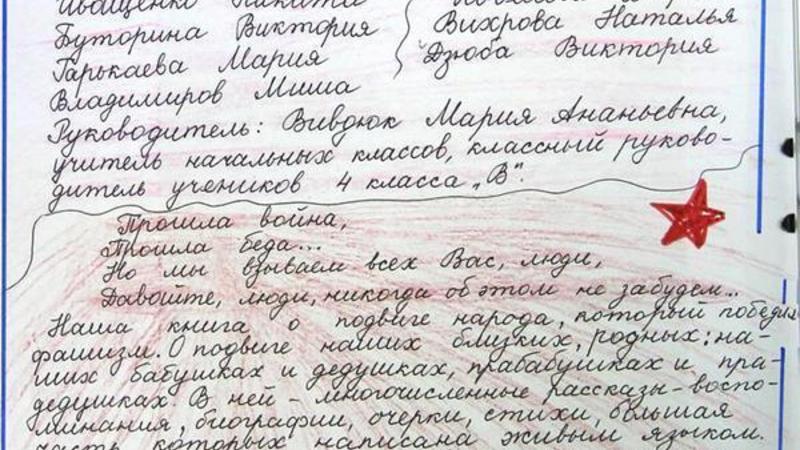 Иващенко Никита
Буторина Виктория
Гарькаева Мария
Владимиров Миша
Вихрова Наталья
Дзюба Виктория
Руководитель: Вивдюк Мария Ананьевна,
учитель начальных классов, классный руково-
дитель учеников 4 класса „В".
Прошла война,
Прошла беда...
Но мы взываем всех Вас, люди,
Давайте, люди, никогда об этом не забудем...
Наша книга о подвиге народа, который победил
фашизм. О подвиге наших близких, родных: на-
ших бабушках и дедушках, прабабушках и пра-
дедушках. В ней - многочисленные рассказы-воспо-
минания, биографии, очерки, стихи, большая
часть которых написана живым языком.